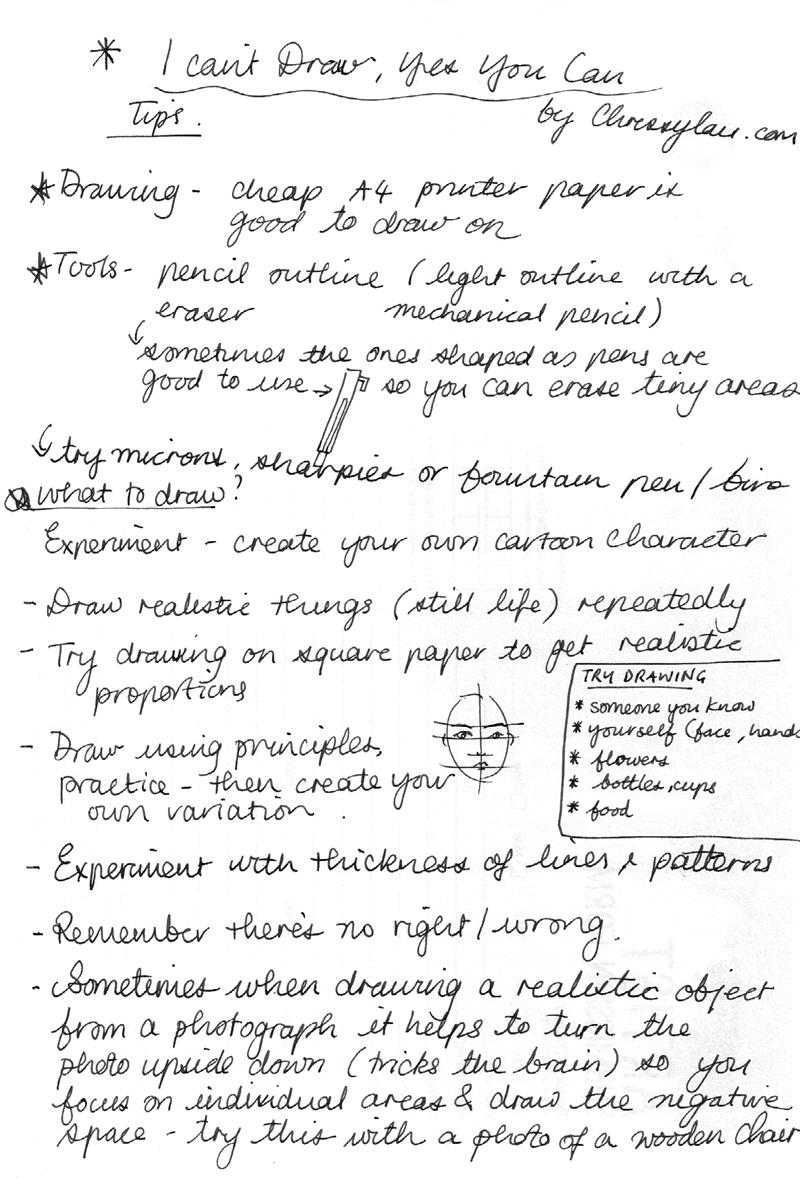 * I can't Draw, Yes You Can
Tips.
by Chrissylau.com
* Drawing - cheap A4 printer paper is
good to draw on
* Tools - pencil outline (light outline with a
eraser mechanical pencil)
sometimes the ones shaped as pens are
good to use → so you can erase tiny areas
try microns, sharpies or fountain pen / biro
what to draw?
Experiment - create your own cartoon character
- Draw realistic things (still life) repeatedly
- Try drawing on square paper to get realistic
proportions
- Draw using principles,
practice - then create your
own variation.
TRY DRAWING
* someone you know
* yourself (face, hands
* flowers
* bottles, cups
* food
- Experiment with thickness of lines & patterns
- Remember there's no right / wrong.
- Sometimes when drawing a realistic object
from a photograph it helps to turn the
photo upside down (tricks the brain) so you
focus on individual areas & draw the negative
space - try this with a photo of a wooden chair